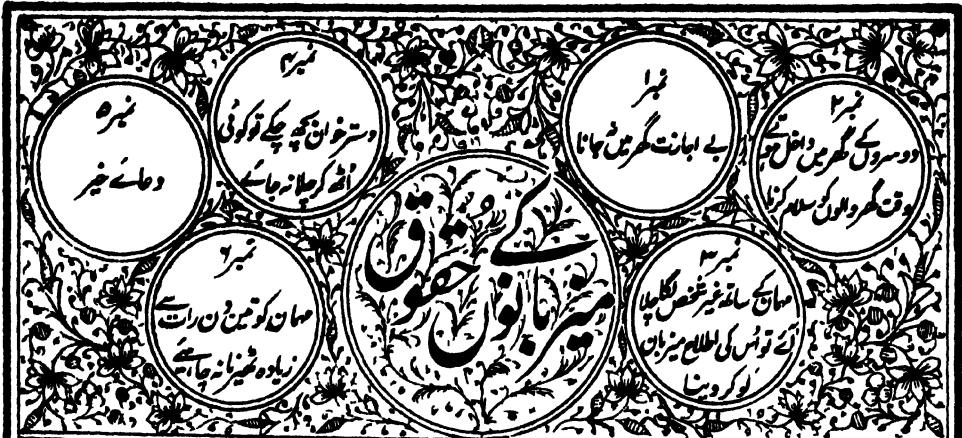 میزبانوں کے حقوق
نمبر ۱
بے اجازت گھر میں نہ جانا
نمبر ۲
دوسروں کے گھر میں داخل ہوتے
وقت گھر والوں کو سلام کرنا
نمبر ۳
مہمان کے ساتھ غیر شخص لگا چلا
آئے تو اُس کی اطلاع میزبان
کو کر دینا
نمبر ۴
دسترخوان بچھ چکے تو کوئی
اُٹھ کر چلا نہ جائے
نمبر ۵
دعائے خیر
نمبر ۶
مہمان کو تین دن رات سے
زیادہ ٹھیرنا نہ چاہیے